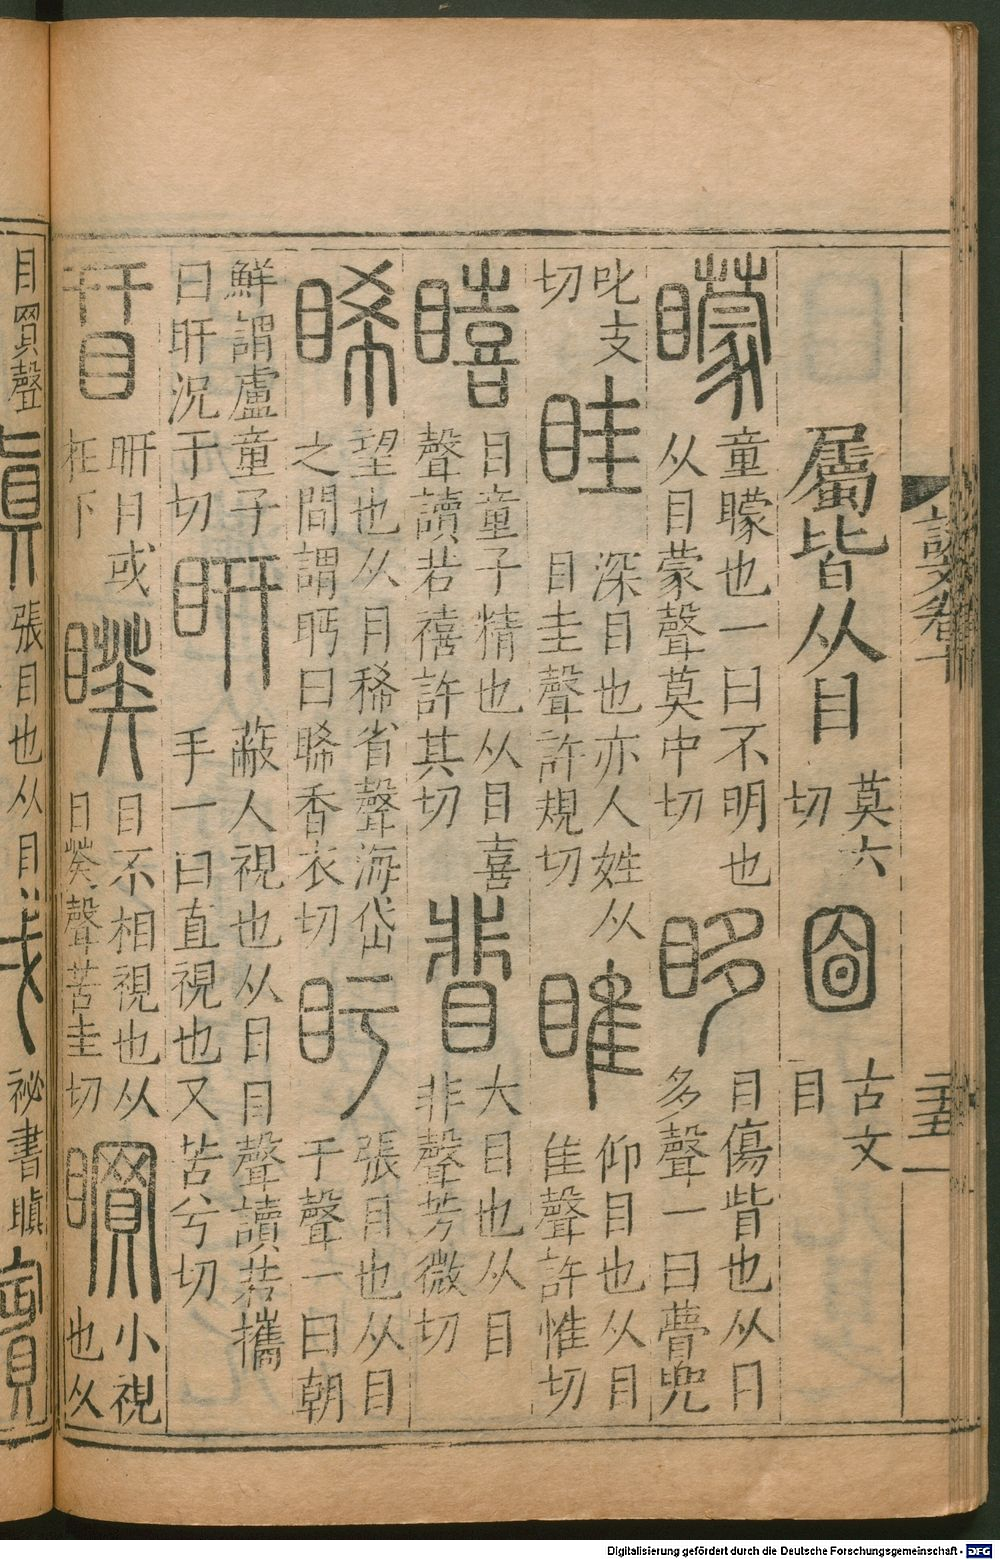 屬皆从目 莫六切 囼 古文目
矇 童矇也一曰不明也从目蒙聲莫中切 眵 目傷眥也从目多聲一曰瞢兜
叱支切 眭 深目也亦人姓从目圭聲許規切 睢 仰目也从目隹聲許惟切
瞦 目童子精也从目喜聲讀若禧許其切 䀟 大目也从目非聲芳微切
睎 望也从月稀省聲海岱之間謂眄曰睎香衣切 盱 張目也从目于聲一曰朝
鮮謂盧童子曰盱況于切 䀘 蔽人視也从目幵聲讀若攜手一曰直視也又苦兮切
䀘 䀘目或在下 睽 目不相視也从目癸聲苦圭切 矏 小視也从
目買聲 䀼 張目也从目戍 祕書瞋
說文卷十
Digitalisierung gefördert durch die Deutsche Forschungsgemeinschaft - DFG